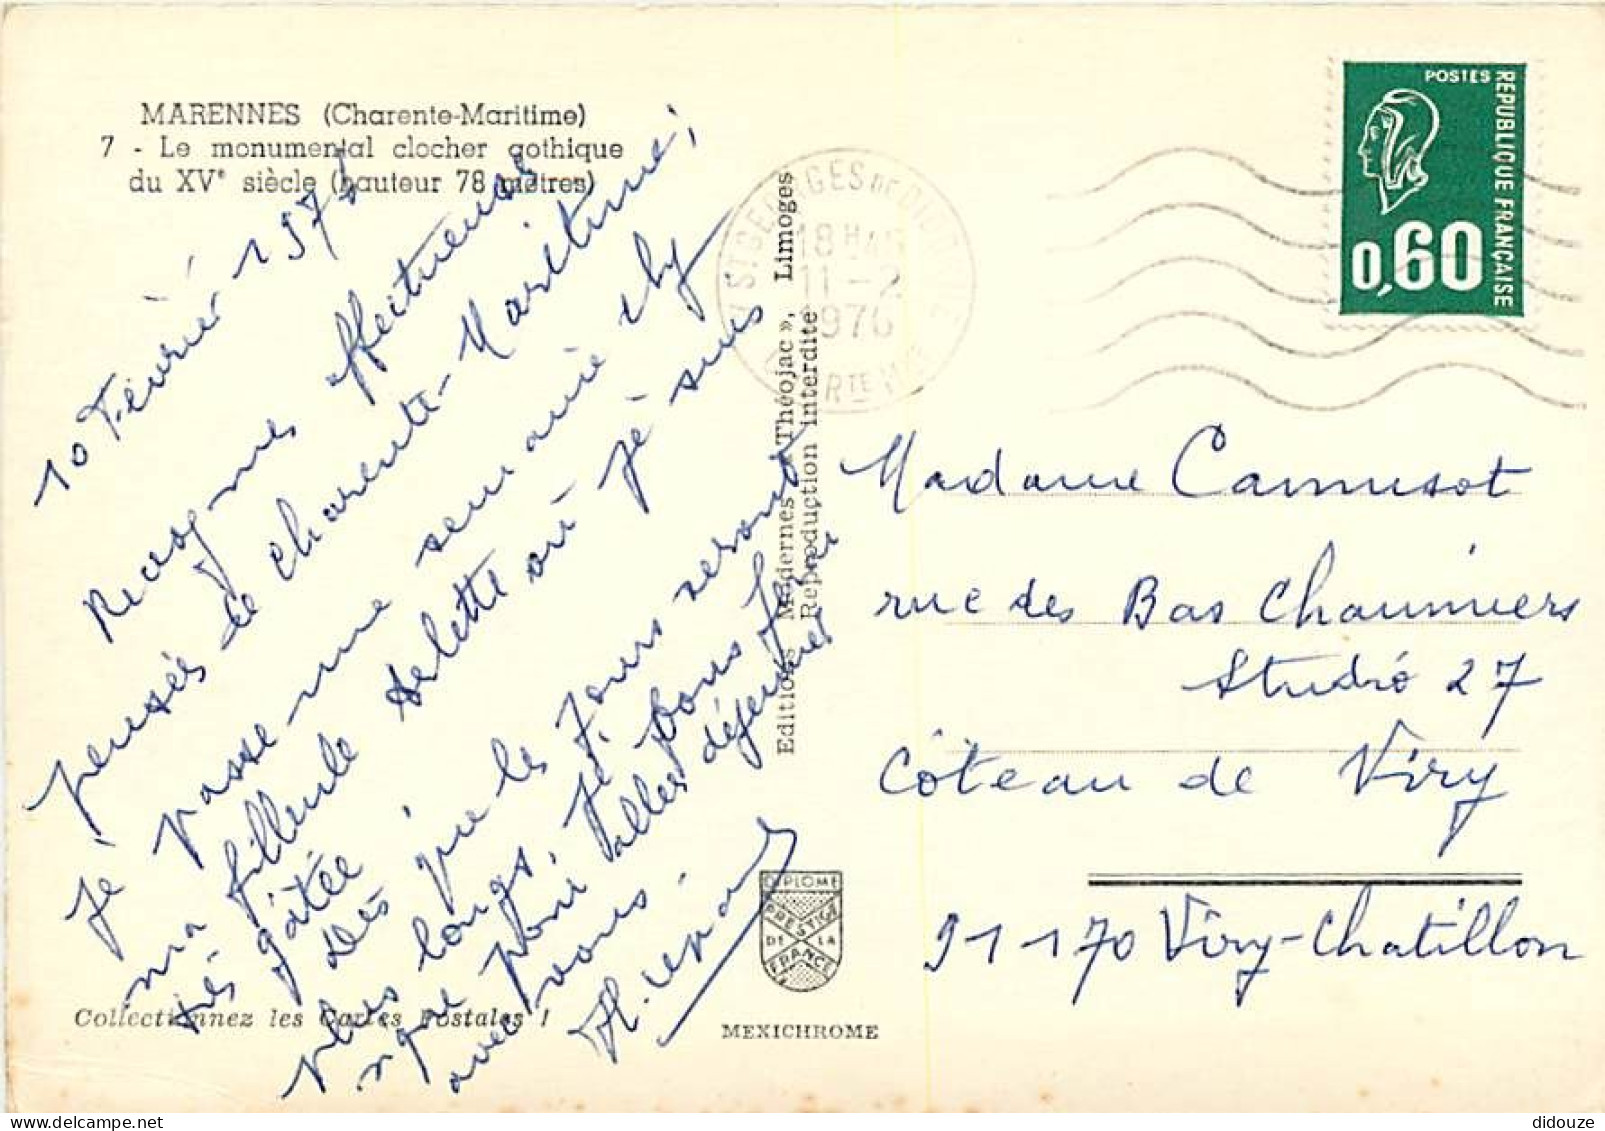 MARENNES (Charente-Maritime)
7 - Le monumental clocher gothique
du XVe siècle (hauteur 78 mètres)
10 Février 197
Reçognes affectueuses
pensées de Charente-Maritime;
Je passe une semaine chy
ma filleule Arlette où je suis
très gâtée
Dès que les jours seront
plus longs, je pous
que pour aller déjeuner
avec vous.
Collectionnez les Cartes Postales !
Editions Modernes « Théojac », Limoges
Reproduction interdite
DIPLOME
PRESTIGE
DE LA
FRANCE
MEXICHROME
ST GEORGES DE DIDONNE
18 H
11-2
1976
POSTES
REPUBLIQUE FRANÇAISE
0,60
Madame Camusot
rue des Bas Chaumiers
Studio 27
Côteau de Viry
91170 Viry-Chatillon
didouze